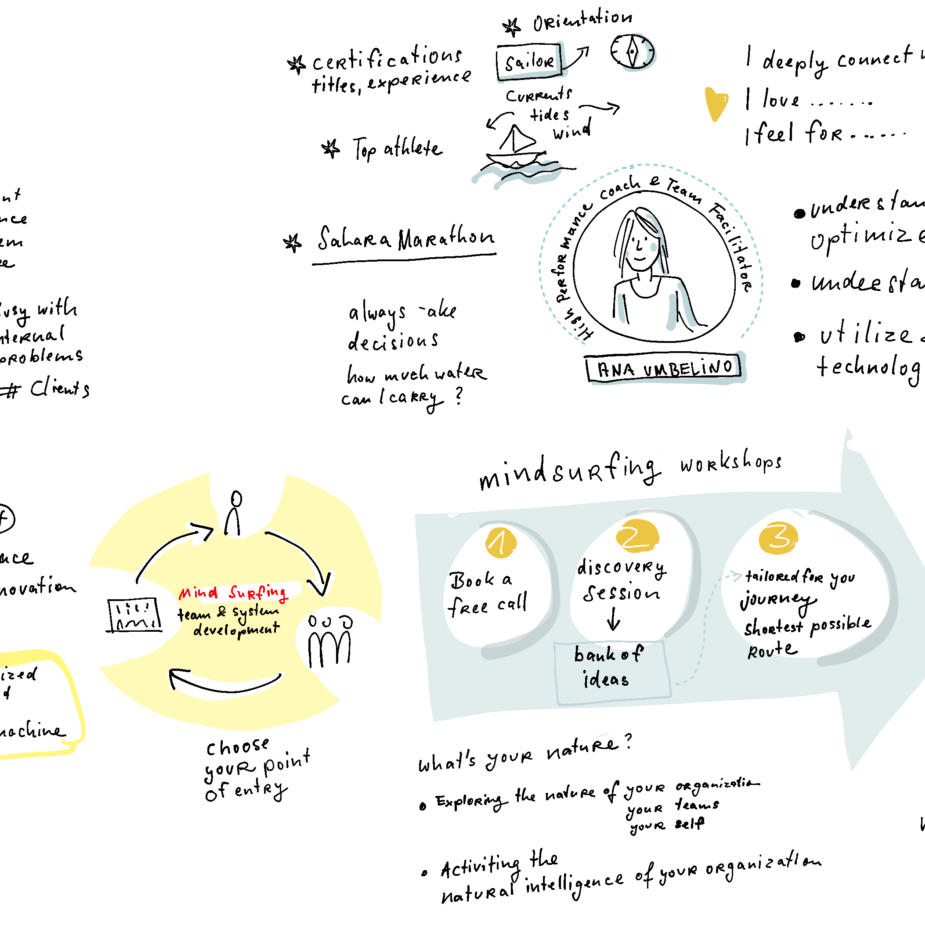 Orientation
certifications
titles, experience
Sailor
Currents
tides
wind
Top athlete
I deeply connect
I love .......
I feel for ......
High Performance coach & Team Facilitator
Sahara Marathon
always -ake
decisions
how much water
can I carry ?
ANA UMBELINO
understan
optimize
undeesta
utilize
technolog
nt
nce
em
ee
usy with
nternal
problems
# Clients
mindsurfing workshops
1
Book a
free call
2
discovery
session
bank of
ideas
3
tailored for you
journey
shortest possible
Route
Mind Surfing
team & system
development
choose
your point
of entry
nce
novation
ized
d
machine
what's your nature?
Exploring the nature of your organizatio
your teams
your self
Activiting the
natural intelligence of your organization